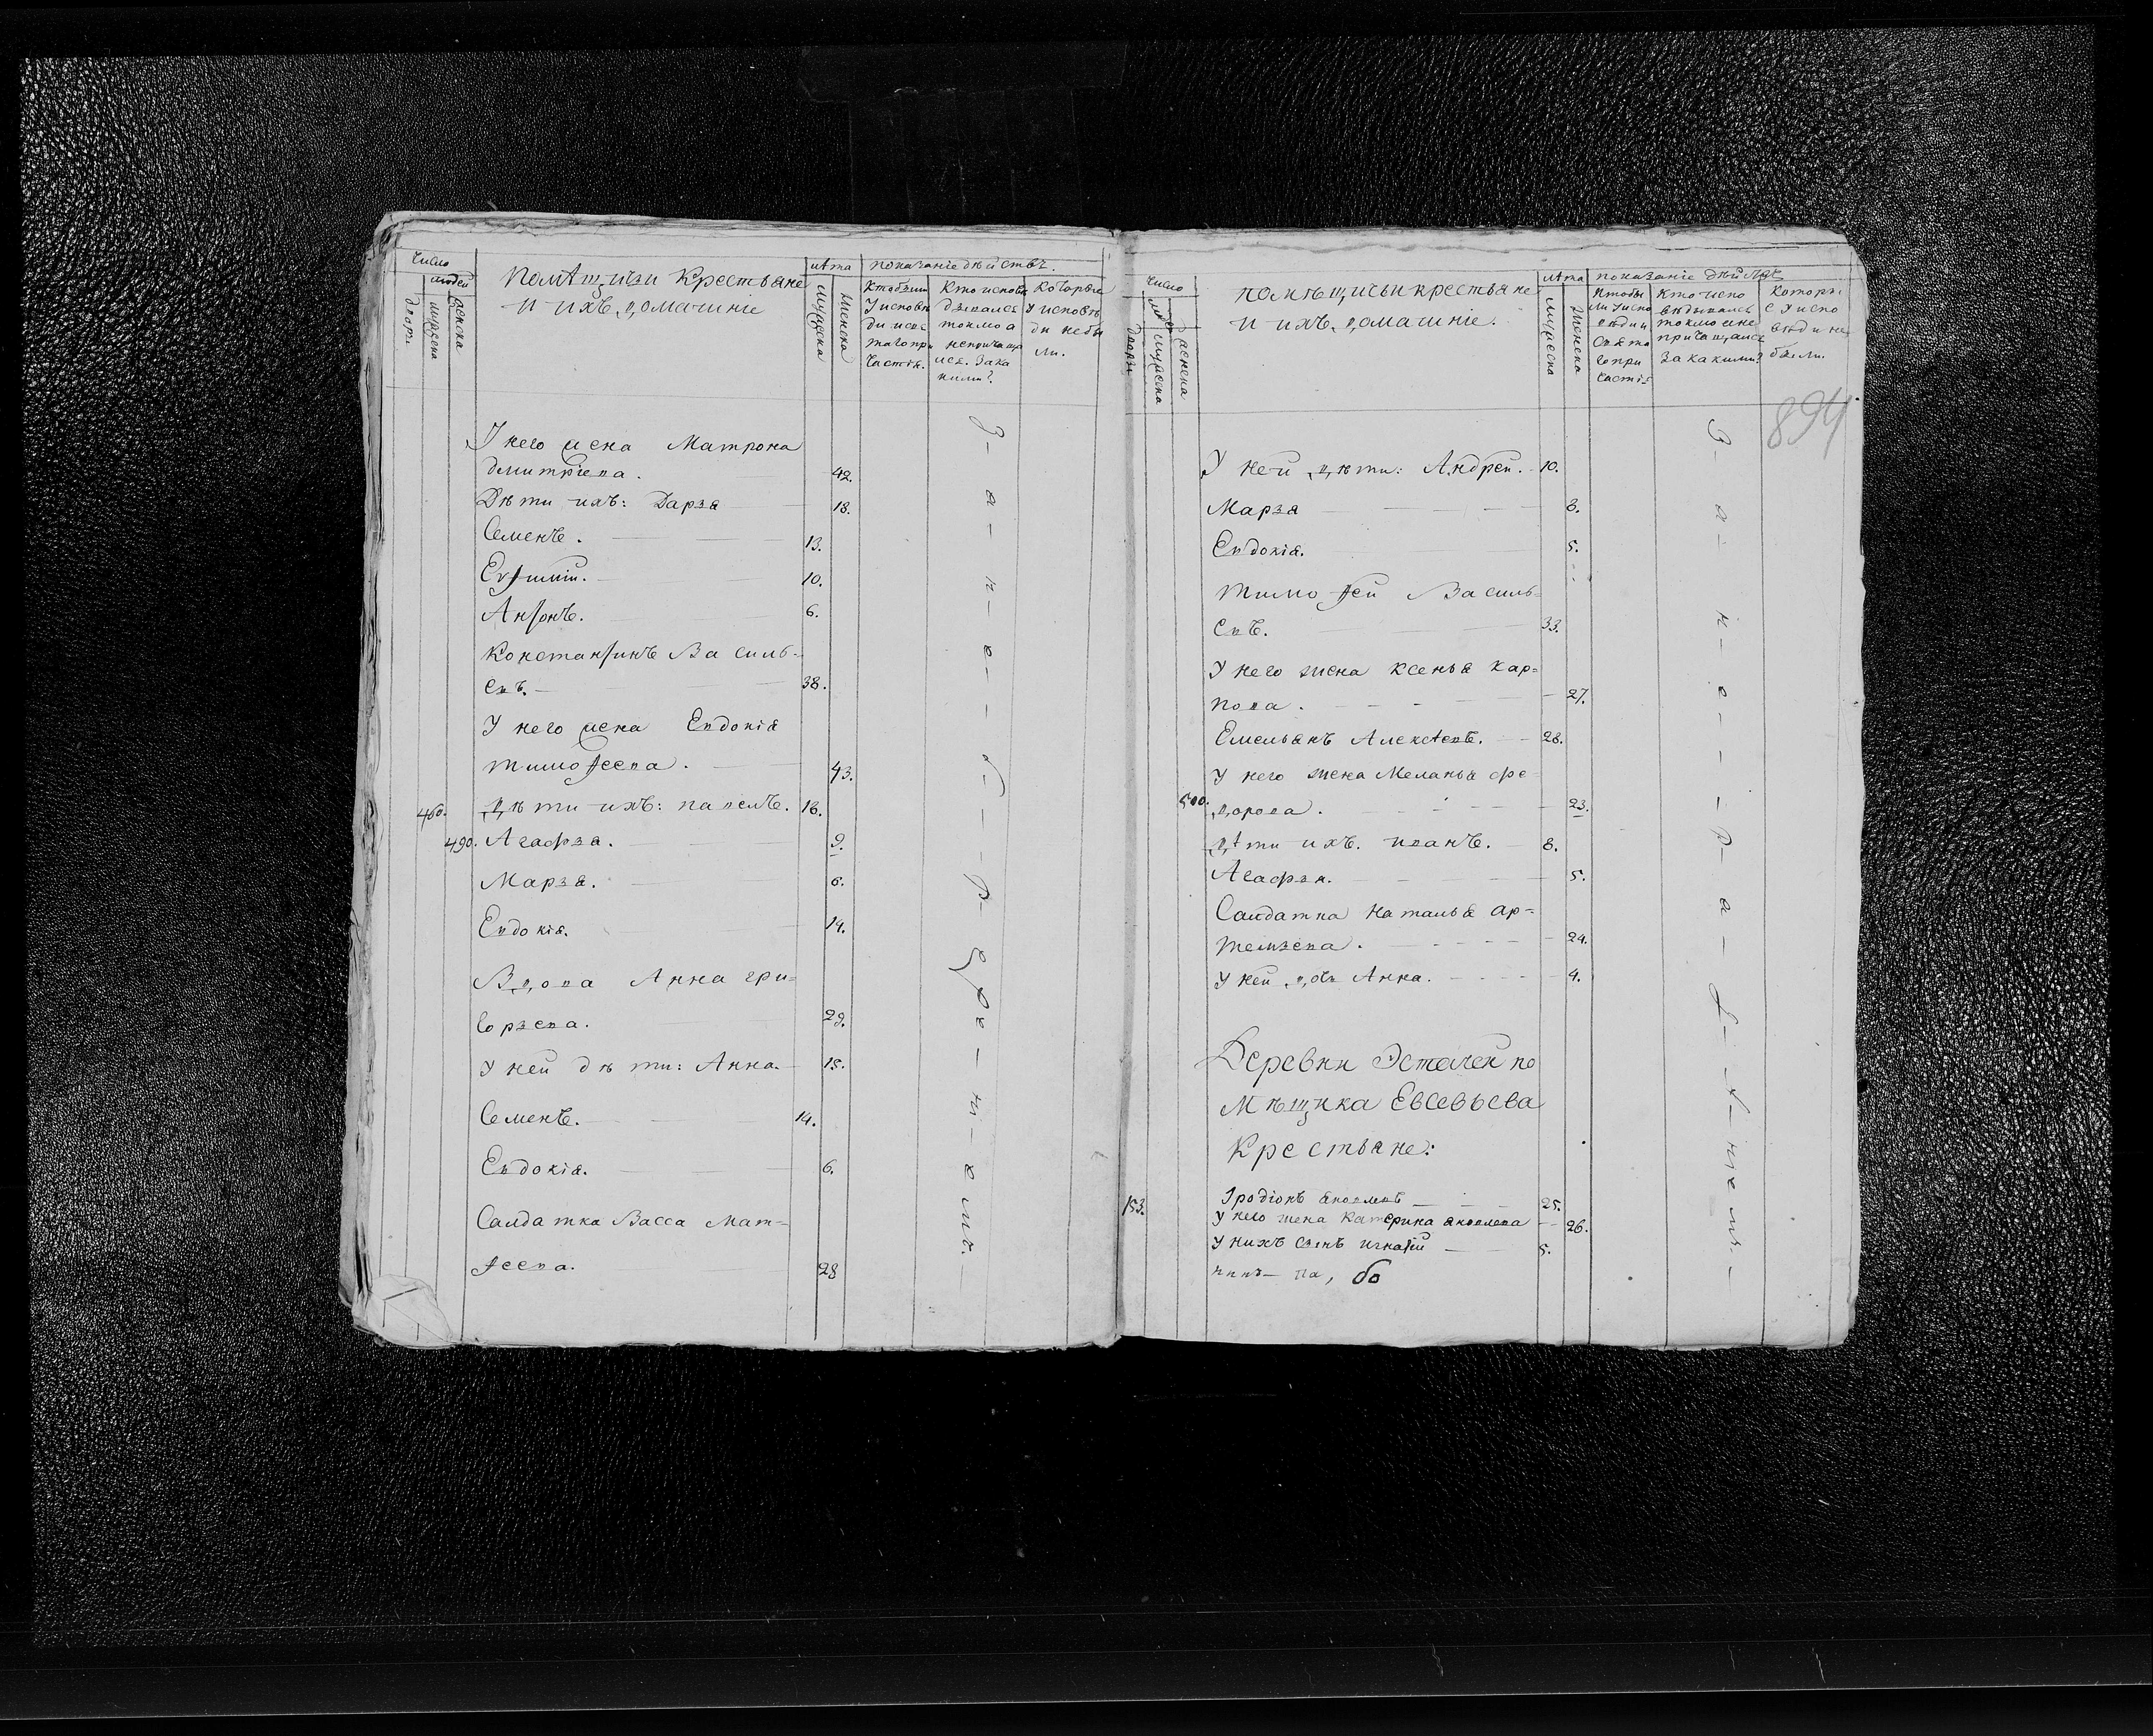 Число
людей
двор.
мужеска
женска
Помѣщичьи Крестьяне
и ихъ домашніе
лѣта
мужеска
женска
показаніе дѣйствъ.
Кто были
у исповѣ
ди и свя
таго при
частія.
Кто испове
дывался
токмо а
непричаща
лся. За ка
кими?
Которыя
у исповѣ
ди не бы
ли.
У него жена Матрона
дмитріева. 42.
Дѣти ихъ: Дарья 18.
Семенъ. 13.
Евѳимій. 10.
Анѳонъ. 6.
Констанѳинъ Василь-
евъ. 38.
У него жена Евдокія
тимоѳеева. 43.
460. дѣти ихъ: павелъ. 16.
490. Агафья. 9.
Марья. 6.
Евдокія. 14.
Вдова Анна гри=
горьева. 29.
У ней дѣти: Анна. 15.
Семенъ. 14.
Евдокія. 6.
Салдатка Васса Мат=
ѳеева. 28
Число
люде
дворы
мужеска
женска
помѣщичьи крестьяне
и ихъ домашніе.
лѣта
мужеска
женска
показаніе дѣйствъ
Кто бы
ли у испо
вѣди и
свята
го при
частія
Кто испо
вѣдывались
токмо и не
причащался
за какими?
Которы
е у испо
вѣди не
были.
894
У ней дѣти: Андрей. 10.
Марья 8.
Евдокія. 5.
Тимоѳей Василь=
евъ. 33.
У него жена Ксенья кар=
пова. 27.
Емельянъ Алексѣевъ. 28.
У него жена Меланья фе=
500. дорова. 23.
дѣти ихъ. иванъ. 8.
Агафья. 5.
Салдатка Наталья ар=
темьева. 24.
У ней дочь Анна. 4.
Деревни Эсталеи по
мѣщика Евсевьева
Крестьяне:
153. Іродіонъ яковлевъ 25.
У него жена Катерина яковлева 26.
У нихъ сынъ игнатій 5.